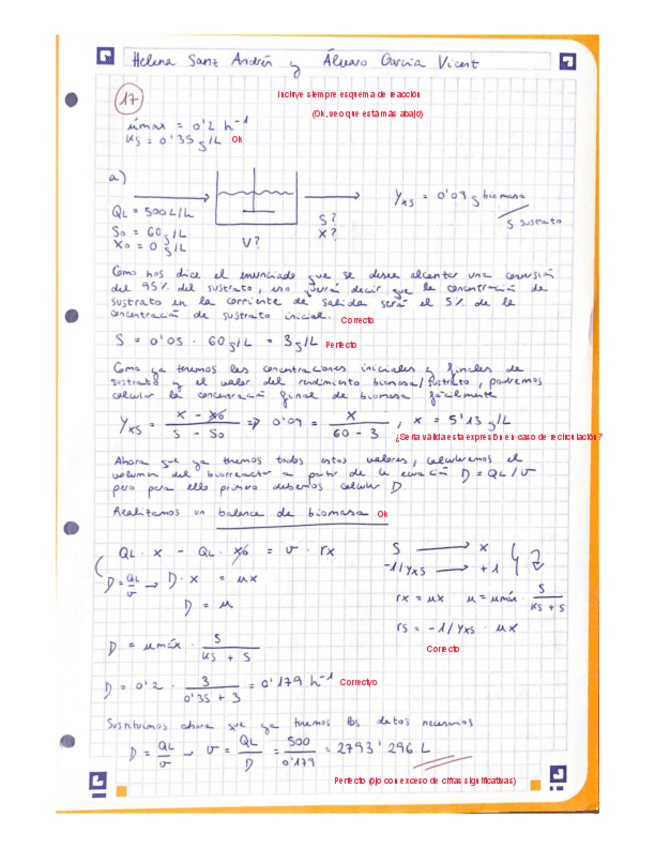 Helena Sanz Andrés y Álvaro García Vicent
Incluye siempre esquema de reacción
17
(Ok, veo que está más abajo)
μmax = 0'2 h⁻¹
KS = 0'35 g/L Ok
a)
QL = 500 L/h
S0 = 60 g/L
X0 = 0 g/L
V?
S?
X?
YXS = 0'09 g biomasa / g sustrato
Como nos dice el enunciado que se desea alcanzar una conversión
del 95% del sustrato, eso querrá decir que la concentración de
sustrato en la corriente de salida será el 5% de la
concentración de sustrato inicial. Correcto
S = 0'05 · 60 g/L = 3 g/L Perfecto
Como ya tenemos las concentraciones iniciales y finales de
sustrato y el valor del rendimiento biomasa/sustrato, podremos
calcular la concentración final de biomasa fácilmente
YXS = (X - X0) / (S - S0) => 0'09 = X / (60 - 3), X = 5'13 g/L
¿Sería válida esta expresión en caso de recirculación?
Ahora que ya tenemos todos estos valores, calcularemos el
volumen del biorreactor a partir de la ecuación D = QL/V
pero para ello primero debemos calcular D
Realizamos un balance de biomasa Ok
QL · X - QL · X0 = V · rx
D = QL/V → D · X = μX
D = μ
S → X
-1/YXS → +1
rx = μX μ = μmáx · S / (KS + S)
rs = -1/YXS · μX
Correcto
D = μmáx · S / (KS + S)
D = 0'2 · 3 / (0'35 + 3) = 0'179 h⁻¹ Correctyo
Sustituimos ahora que ya tenemos los datos necesarios
D = QL/V → V = QL/D = 500/0'179 = 2793'296 L
Perfecto (ojo con exceso de cifras significativas)